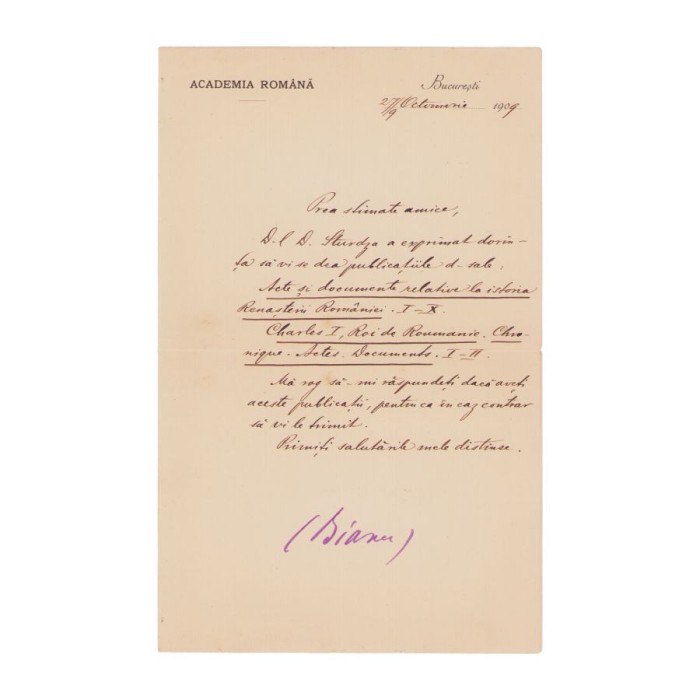 ACADEMIA ROMÂNĂ
București
Octomvrie 1909
Prea stimate amice,
D-l D. Sturdza a exprimat dorin-
ța să vi se dea publicațiile d-sale,
Acte și documente relative la istoria
Renașterii României. I–X.
Charles I, Roi de Roumanie. Chro-
nique. Actes. Documents. I–II.
Mă rog să-mi răspundeți dacă aveți
aceste publicații, pentru ca în caz contrar
să vi le trimit.
Primiți salutările mele distinse.
(Bianu)